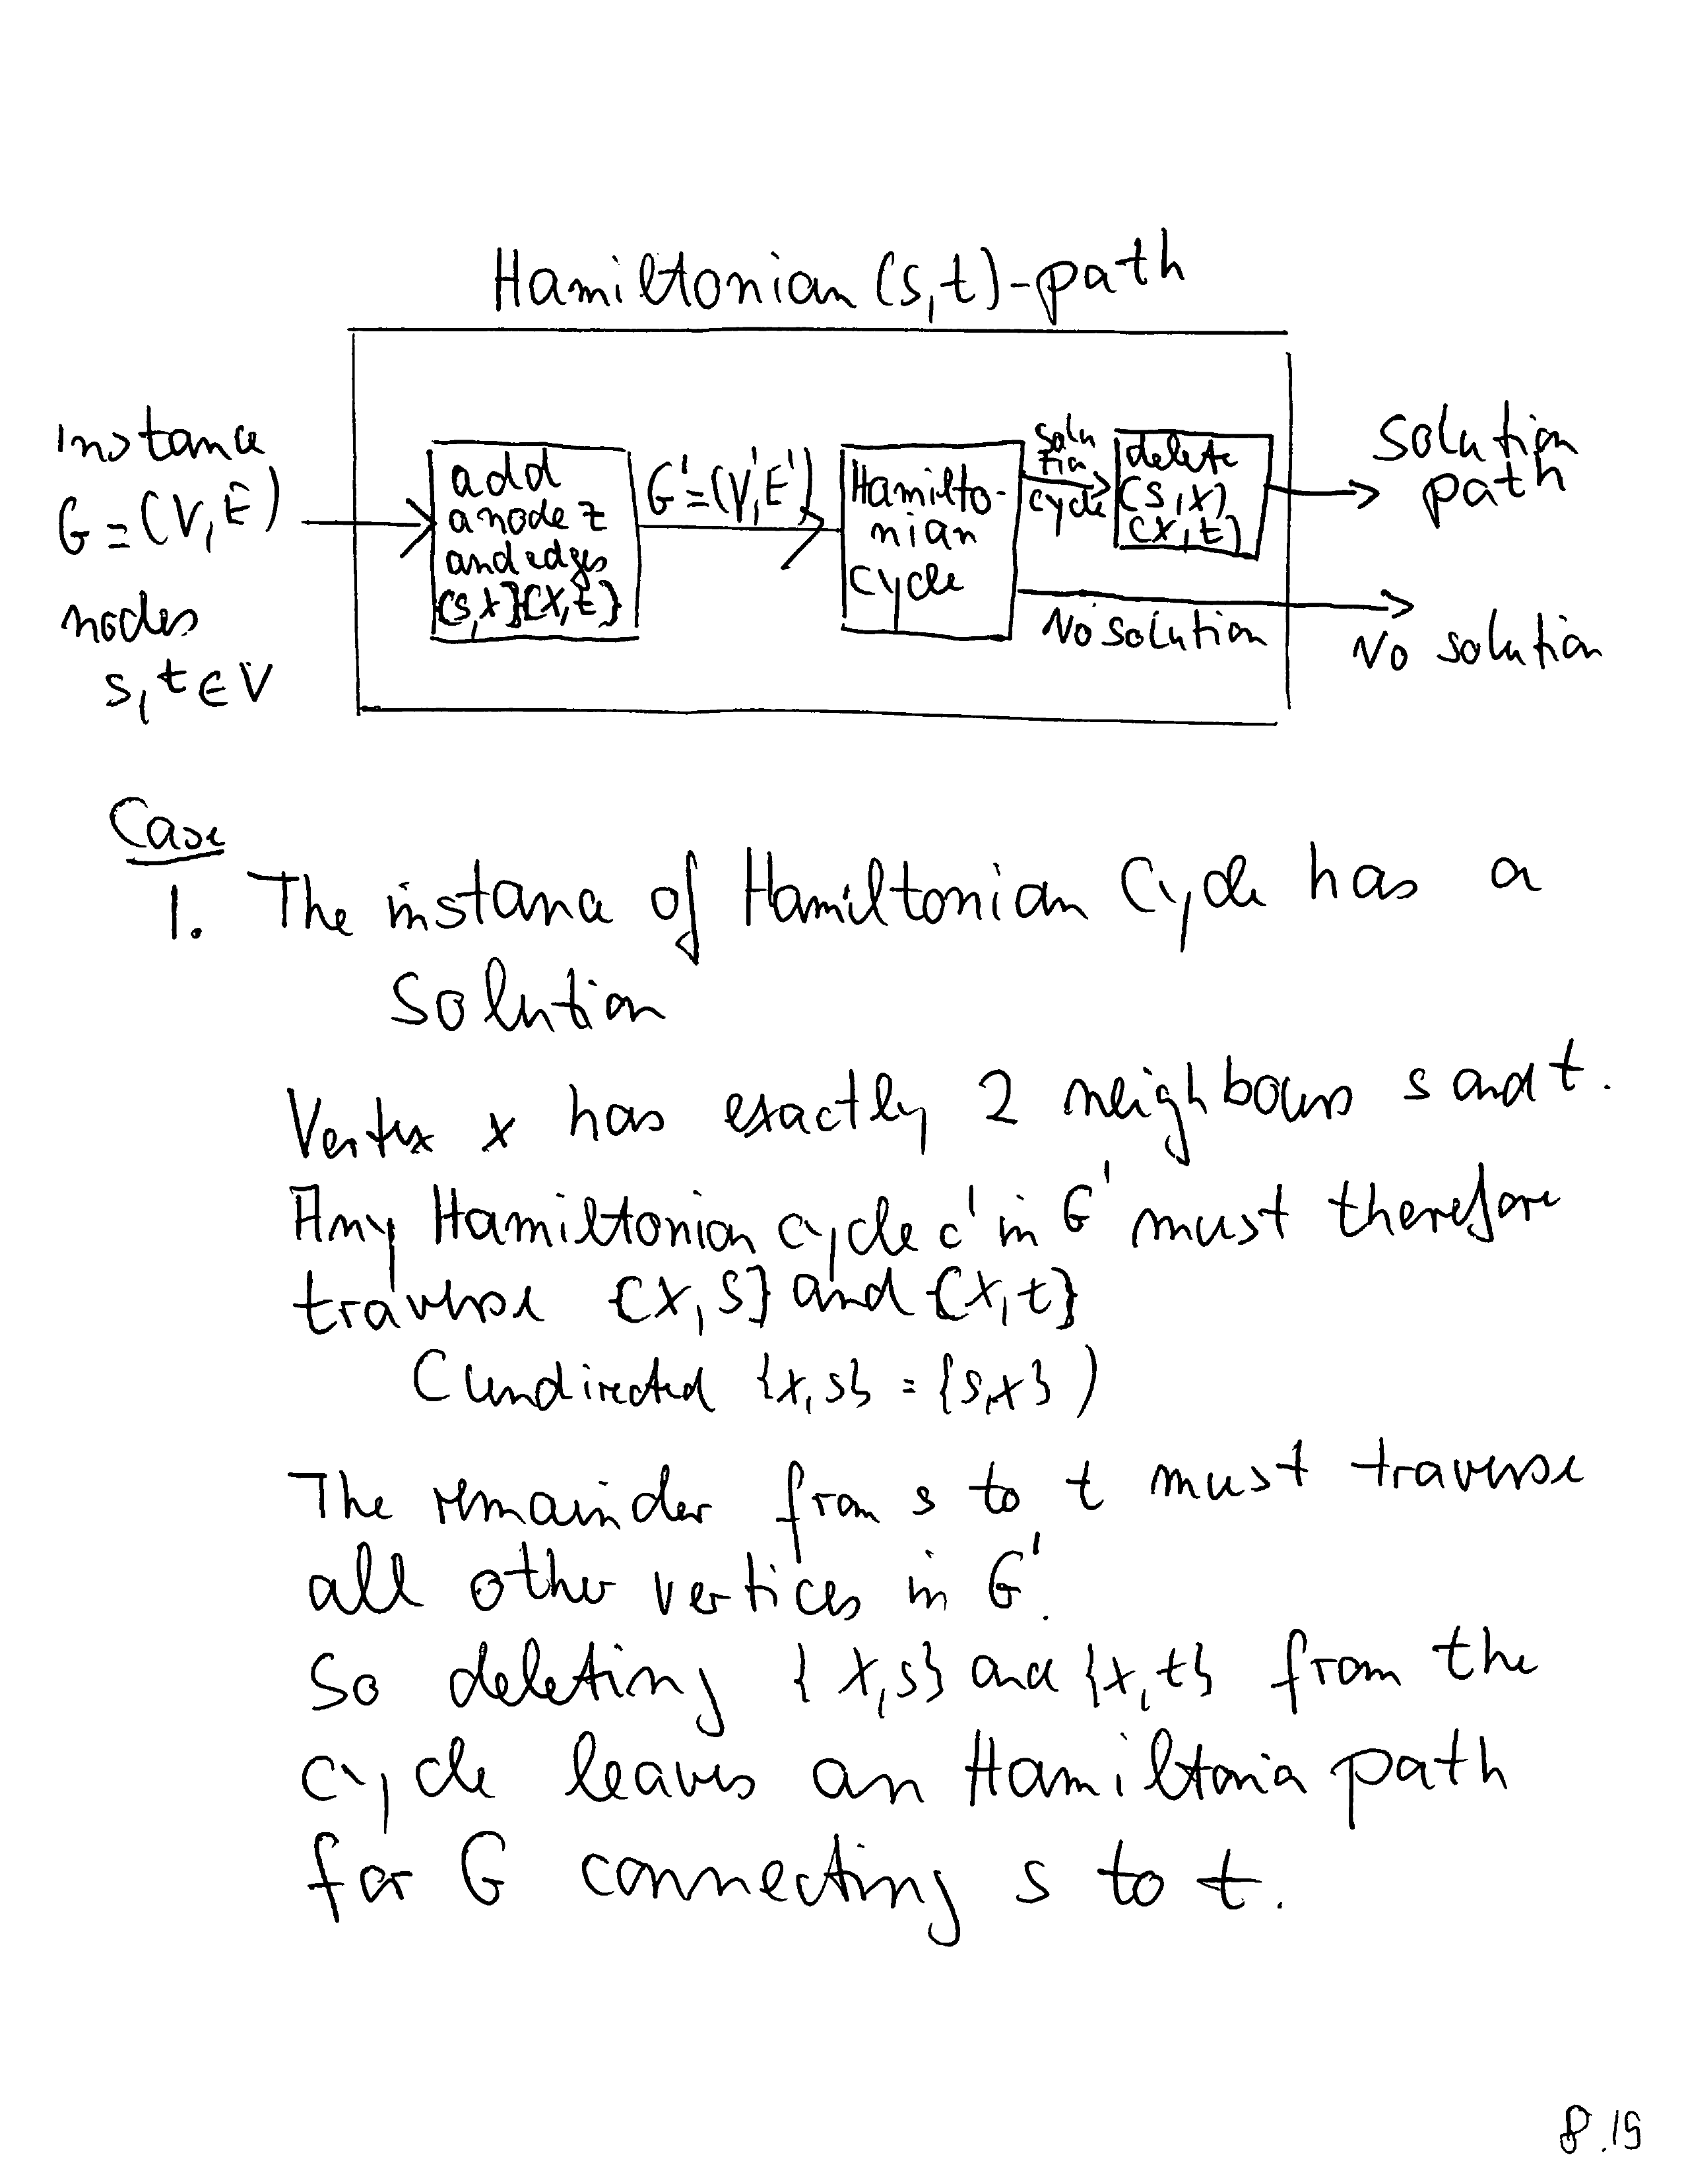 Hamiltonian (s,t)-path
instance
G = (V, E)
nodes
s, t ∈ V
add
a node z
and edges
{s,x}{x,t}
G' = (V', E')
Hamilto-
nian
Cycle
solu
tion
cycle
delete
(s,x)
(x,t)
solution
path
No solution
No solution
Case
1. The instance of Hamiltonian Cycle has a
solution
Vertex x has exactly 2 neighbours s and t.
Any Hamiltonian cycle c' in G' must therefore
traverse {x,s} and {x,t}
(undirected {x,s} = {s,x})
The remainder from s to t must traverse
all other vertices in G'.
So deleting {x,s} and {x,t} from the
cycle leaves an Hamiltonia path
for G connecting s to t.
8.19